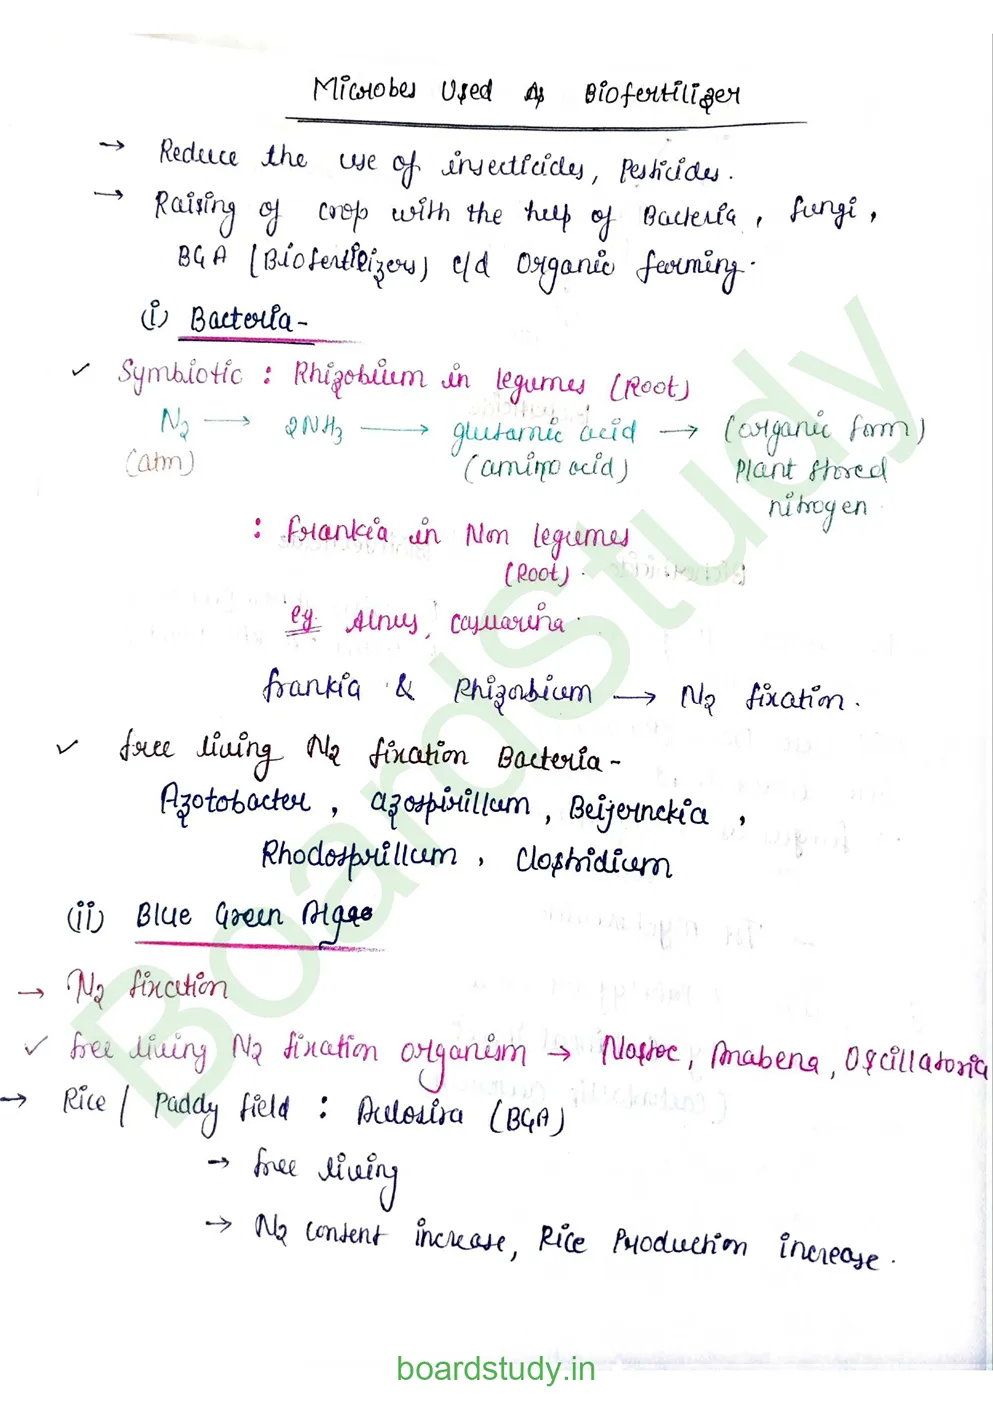 Microbes Used As Biofertilizer
→ Reduce the use of insecticides, Pesticides.
→ Raising of crop with the help of Bacteria, fungi,
BGA (Biofertilizers) c/d Organic farming.
(i) Bacteria-
✓ Symbiotic : Rhizobium in legumes (Root)
N2 → 2NH3 → glutamic acid → (organic form)
(atm) (amino acid) Plant stored
nitrogen.
: frankia in Non legumes
(Root).
eg. Alnus, Casuarina.
frankia & Rhizobium → N2 fixation.
✓ free living N2 fixation Bacteria-
Azotobacter, azospirillum, Beijernckia,
Rhodosprillum, Clostridium
(ii) Blue Green Algae
→ N2 fixation
✓ free living N2 fixation organism → Nostoc, Anabena, Oscillatoria
→ Rice / Paddy field : Aulosira (BGA)
→ free living
→ N2 content increase, Rice Production increase.
BoardStudy
boardstudy.in